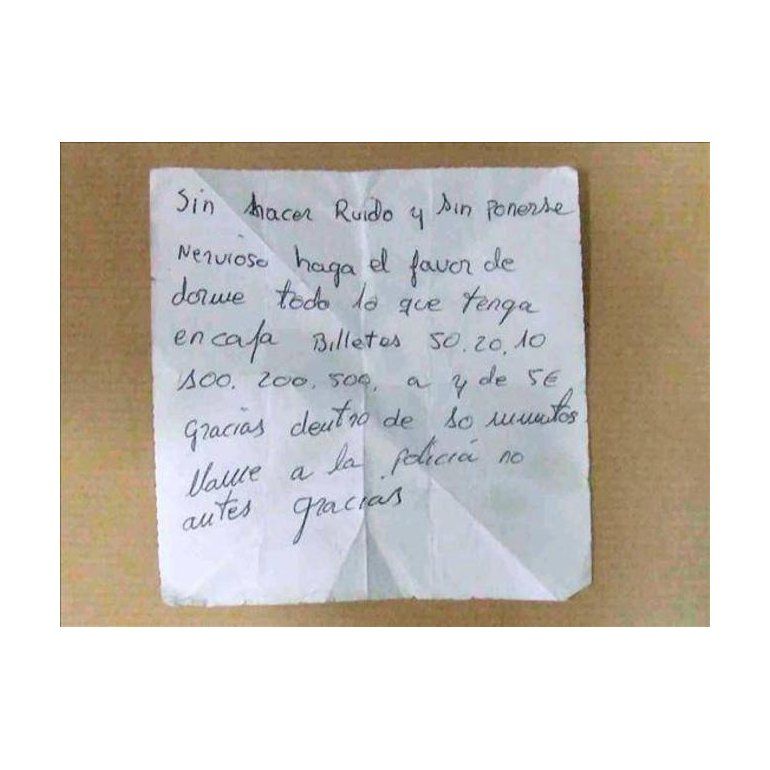 Sin hacer Ruido y sin ponerse
Nervioso haga el favor de
dorme todo lo que tenga
en cafa Billetes 50.20.10
100. 200. 500. a y de 5€
Gracias dentro de 10 minutos
llame a la policiá no
antes gracias